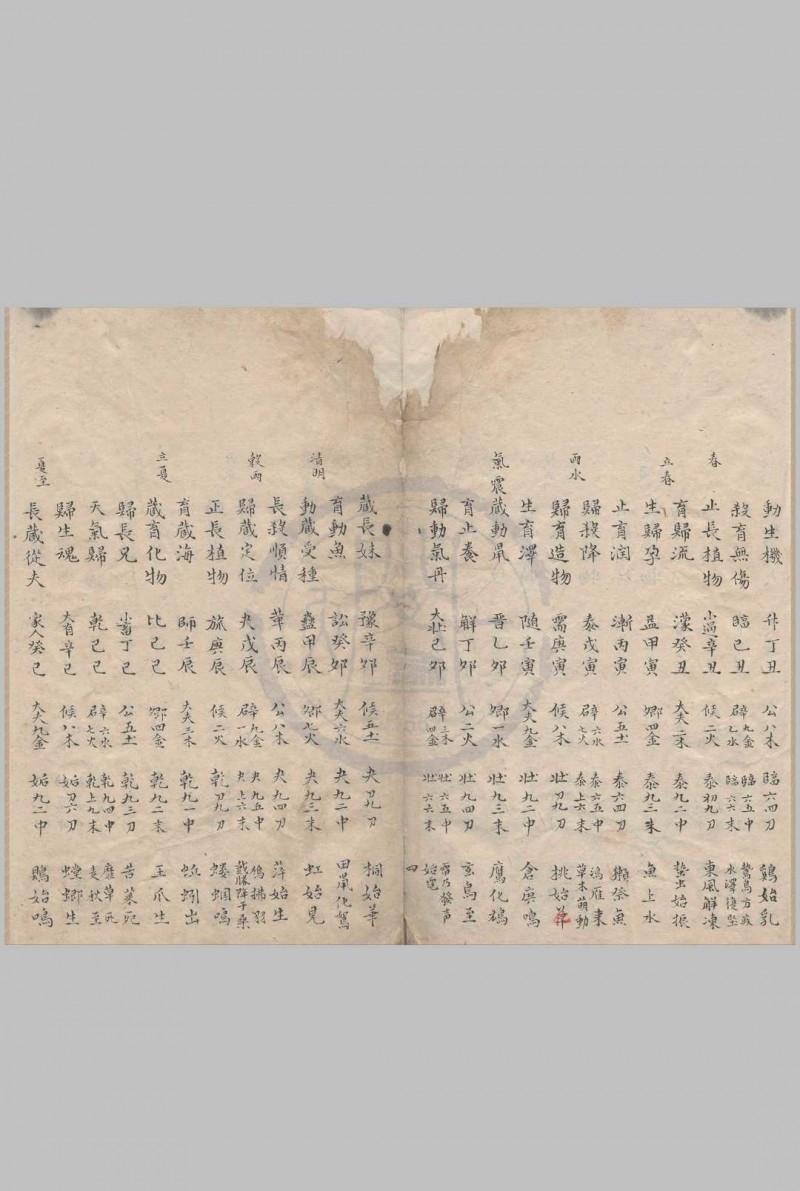 動生機 升丁丑 公八木 臨六四刀 鷄始乳
殺育無傷 臨己丑 辟九金七水 臨六五中 臨六六末 鷙鳥方厲 水澤復堅
春 止長植物 小過辛丑 候二火 泰初九刀 東風解凍
育歸流 濛癸丑 大夫三木 泰九二中 蟄虫始振
立春 生歸孕 益甲寅 卿四金 泰九三末 魚上水
止育潤 漸丙寅 公五土 泰六四刀 獺祭魚
歸殺降 泰戊寅 辟六水七火 泰六五中 泰上六末 鴻雁來 草木萌動
雨水 歸育造物 需庚寅 候八木 壯刀九刀 桃始華
生育澤 随壬寅 大夫九金 壯九二中 倉庚鳴
氣震 蔵動鼎 晋乙夘 卿一水 壯九三末 鷹化鳩
育止養 解丁夘 公二火 壯九四刀 玄鳥至
歸動氣丹 大壯己夘 辟三木四金 壯六五中 壯六六末 雷乃發声 始電
四
蔵長妹 豫辛夘 候五土 夬刀九刀 桐始華
育動魚 訟癸夘 大夫六水 夬九二中 田鼠化鴽
清明 動蔵受種 蠱甲辰 卿七火 夬九三末 虹始見
長殺順情 革丙辰 公八木 夬九四刀 萍始生
穀雨 歸蔵定位 夬戊辰 辟九金一水 夬九五中 夬上六末 鳩拂羽 戴勝降于桑
正長植物 旅庚辰 候二火 乾刀九刀 螻蟈鳴
育蔵海 師壬辰 大夫三木 乾九一中 蚯蚓出
立夏 蔵畜化物 比己巳 卿四金 乾九二末 王瓜生
歸長兄 小畜丁巳 公五土 乾九三刀 苦菜死
天氣歸 乾己巳 辟六水七火 乾九四中 乾上九末 靡草死 麦秋至
歸生魂 大有辛巳 候八木 姤刀六刀 螳螂生
夏至 長蔵從夫 家人癸巳 大夫九金 姤九二中 鵙始鳴